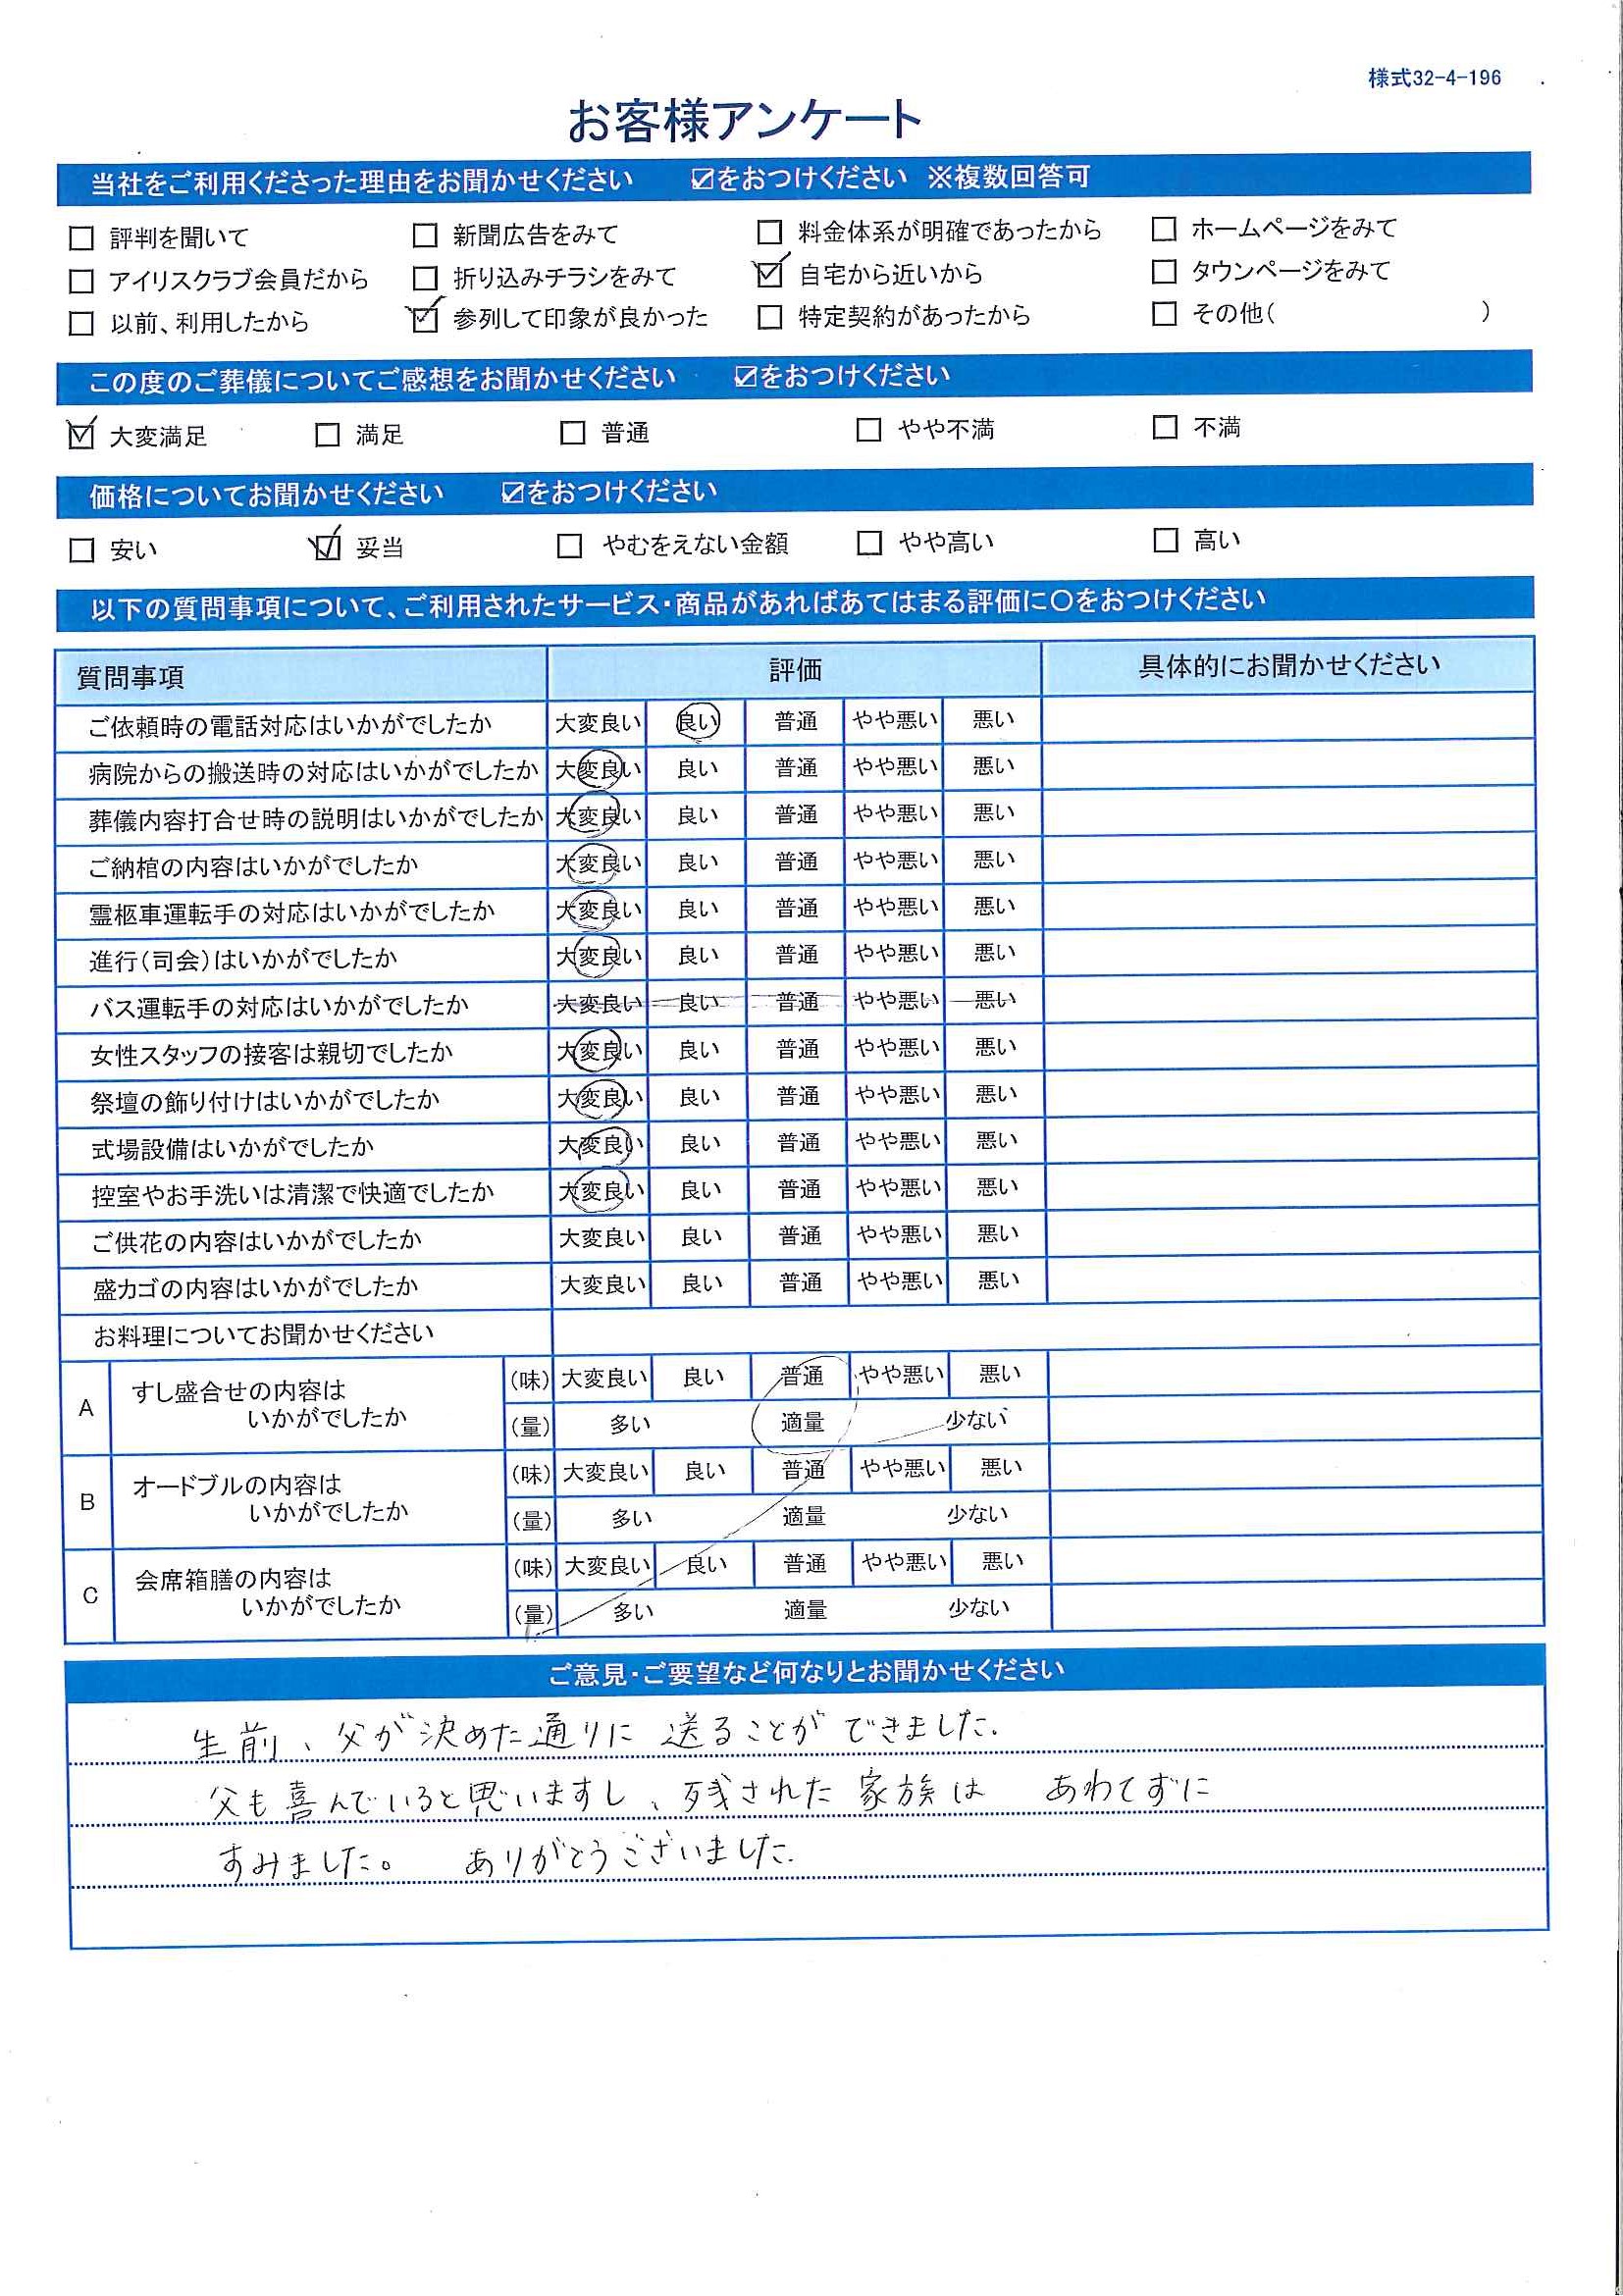 様式32-4-196
お客様アンケート
当社をご利用くださった理由をお聞かせください ☑をおつけください ※複数回答可
□ 評判を聞いて □ 新聞広告をみて □ 料金体系が明確であったから □ ホームページをみて
□ アイリスクラブ会員だから □ 折り込みチラシをみて ☑ 自宅から近いから □ タウンページをみて
□ 以前、利用したから ☑ 参列して印象が良かった □ 特定契約があったから □ その他( )
この度のご葬儀についてご感想をお聞かせください ☑をおつけください
☑ 大変満足 □ 満足 □ 普通 □ やや不満 □ 不満
価格についてお聞かせください ☑をおつけください
□ 安い ☑ 妥当 □ やむをえない金額 □ やや高い □ 高い
以下の質問事項について、ご利用されたサービス・商品があればあてはまる評価に〇をおつけください
質問事項 評価 具体的にお聞かせください
ご依頼時の電話対応はいかがでしたか 大変良い 良い 普通 やや悪い 悪い
病院からの搬送時の対応はいかがでしたか 大変良い 良い 普通 やや悪い 悪い
葬儀内容打合せ時の説明はいかがでしたか 大変良い 良い 普通 やや悪い 悪い
ご納棺の内容はいかがでしたか 大変良い 良い 普通 やや悪い 悪い
霊柩車運転手の対応はいかがでしたか 大変良い 良い 普通 やや悪い 悪い
進行(司会)はいかがでしたか 大変良い 良い 普通 やや悪い 悪い
バス運転手の対応はいかがでしたか 大変良い 良い 普通 やや悪い 悪い
女性スタッフの接客は親切でしたか 大変良い 良い 普通 やや悪い 悪い
祭壇の飾り付けはいかがでしたか 大変良い 良い 普通 やや悪い 悪い
式場設備はいかがでしたか 大変良い 良い 普通 やや悪い 悪い
控室やお手洗いは清潔で快適でしたか 大変良い 良い 普通 やや悪い 悪い
ご供花の内容はいかがでしたか 大変良い 良い 普通 やや悪い 悪い
盛カゴの内容はいかがでしたか 大変良い 良い 普通 やや悪い 悪い
お料理についてお聞かせください
A すし盛合せの内容は (味) 大変良い 良い 普通 やや悪い 悪い
いかがでしたか (量) 多い 適量 少ない
B オードブルの内容は (味) 大変良い 良い 普通 やや悪い 悪い
いかがでしたか (量) 多い 適量 少ない
C 会席箱膳の内容は (味) 大変良い 良い 普通 やや悪い 悪い
いかがでしたか (量) 多い 適量 少ない
ご意見・ご要望など何なりとお聞かせください
生前、父が決めた通りに 送ることが できました.
父も喜んでいると思いますし、残された 家族は あわてずに
すみました。 ありがとうございました.